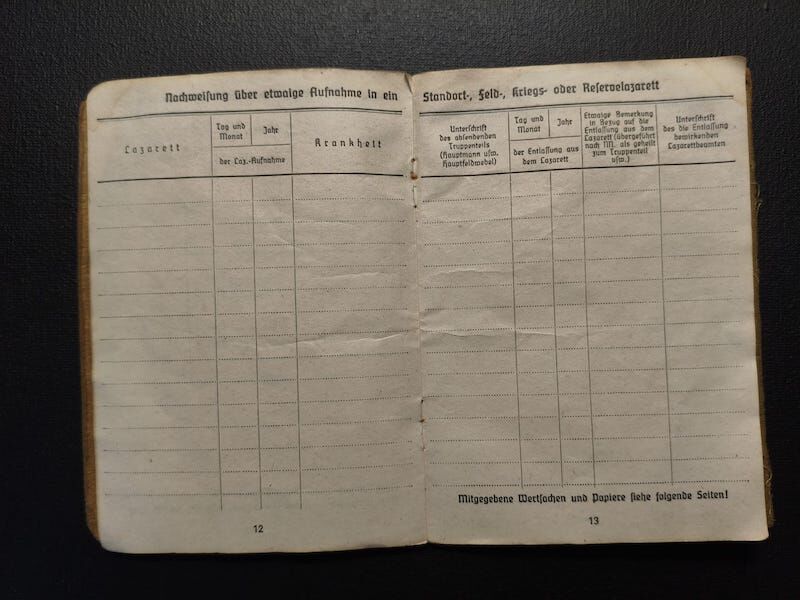 Nachweisung über etwaige Aufnahme in ein
Lazarett
Tag und
Monat
Jahr
der Laz.-Aufnahme
Krankheit
12
Standort-, Feld-, Kriegs- oder Reservelazarett
Unterschrift
des absendenden
Truppenteils
(Hauptmann usw.
Hauptfeldwebel)
Tag und
Monat
Jahr
der Entlassung aus
dem Lazarett
Etwaige Bemerkung
in Bezug auf die
Entlassung aus dem
Lazarett (übergeführt
nach NN. als geheilt
zum Truppenteil
usw.)
Unterschrift
des die Entlassung
bewirkenden
Lazarettbeamten
Mitgegebene Wertsachen und Papiere siehe folgende Seiten!
13